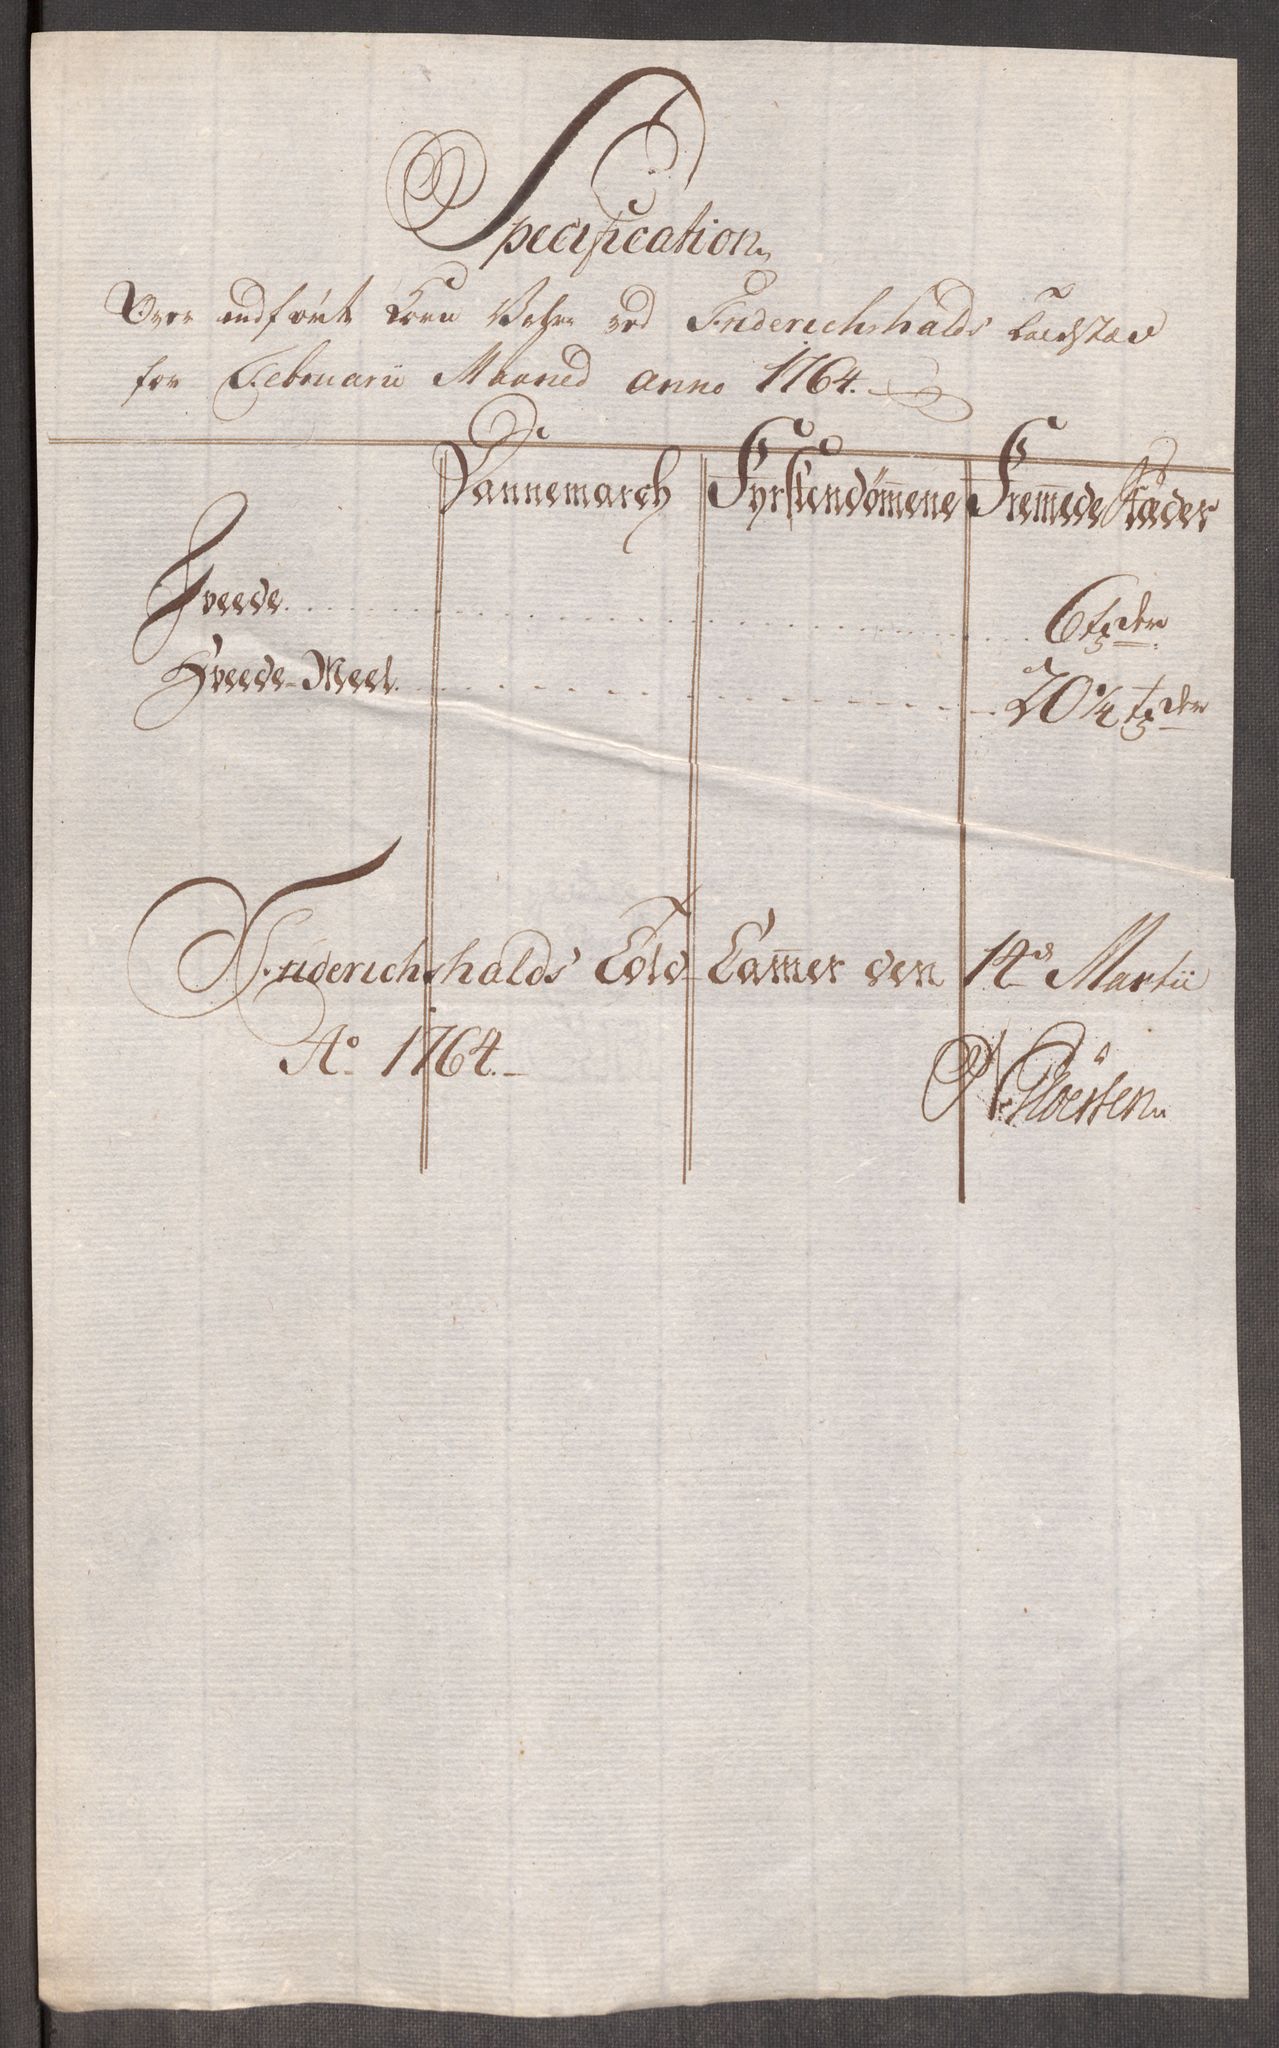 Specification
Over indført Korn Vahre ved Friderichshalds Toldstæd
for Februarii Maaned anno 1764.
Dannemarch Fyrstendömmene Fremmede Stæder
Hveede. 6 tønder
Hveede-Meel. 20 1/4 tønder
Friderichshalds Told Cammer den 14de Martii
Ao 1764.